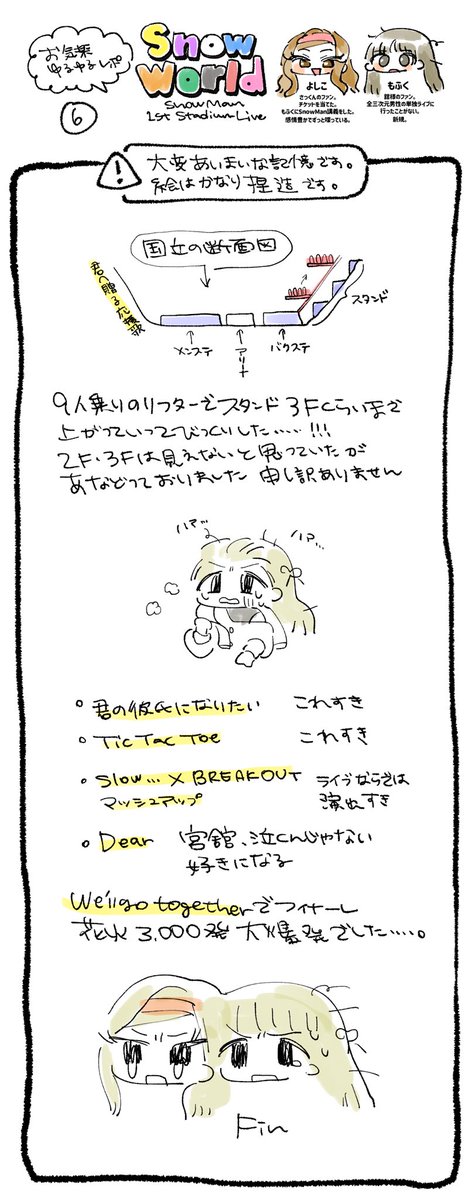 お気楽
ゆるゆるレポ
⑥
Snow
World
Snow Man
1st Stadium Live
よしこ
さっくんのファン。
チケットを当てた。
もふくにSnowMan講義をした。
感情豊かでずっと喋っている。
もふく
舘様のファン。
全三次元男性の単独ライブに
行ったことがない。
新規。
大変あいまいな記憶です。
絵はかなり捏造です。
国立の断面図
君へ贈る応援歌
メンステ
アリーナ
バクステ
スタンド
9人乗りのリフターでスタンド3Fくらいまで
上がっていってびっくりした……!!!
2F・3Fは見えないと思っていたが
あなどっておりました 申し訳ありません
ハァッ
ハァ…
。君の彼氏になりたい これすき
・Tic Tac Toe これすき
・Slow... × BREAKOUT ライブならでは
マッシュアップ 演出すき
・Dear 宮舘、泣くんじゃない
好きになる
We'll go togetherでフィナーレ
花火3.000発 大爆発でした……。
Fin